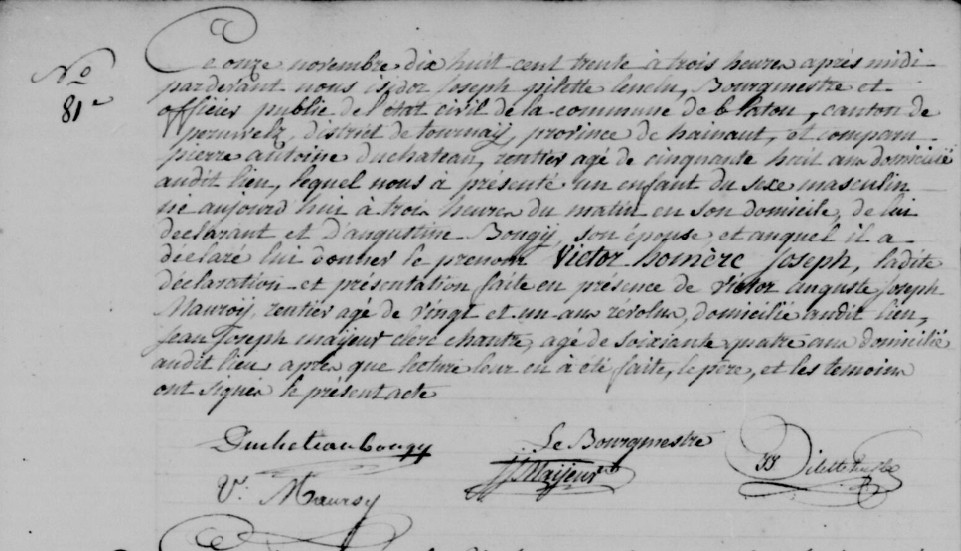 No
81e
Ce onze novembre dix huit cent trente à trois heures après midi
pardevant nous isidor Joseph pilette, Bourgmestre et
officier public de l'état civil de la commune de blaton, canton de
peruwelz, district de tournay, province de hainaut, est comparu
pierre antoine duchateau, rentier agé de cinquante huit ans domicilié
audit lieu, lequel nous à présenté un enfant du sexe masculin
né aujourd hui à trois heures du matin en son domicile, de lui
déclarant et d'augustine Bougy, son épouse, et auquel il a
déclaré lui donner le prenom Victor homère Joseph, ladite
déclaration et présentation faite en présence de victor auguste Joseph
Mauroy, rentier agé de vingt et un ans révolus, domicilié audit lieu,
Jean Joseph majeur clerc chantre, agé de soixiante quatre ans domicilié
audit lieu après que lecture leur en à été faite, le père, et les temoins
ont signés le présent acte
Duchateau bougy
Le Bourgmestre
JJ Maijeur
JJ Pilette
V. Mauroy